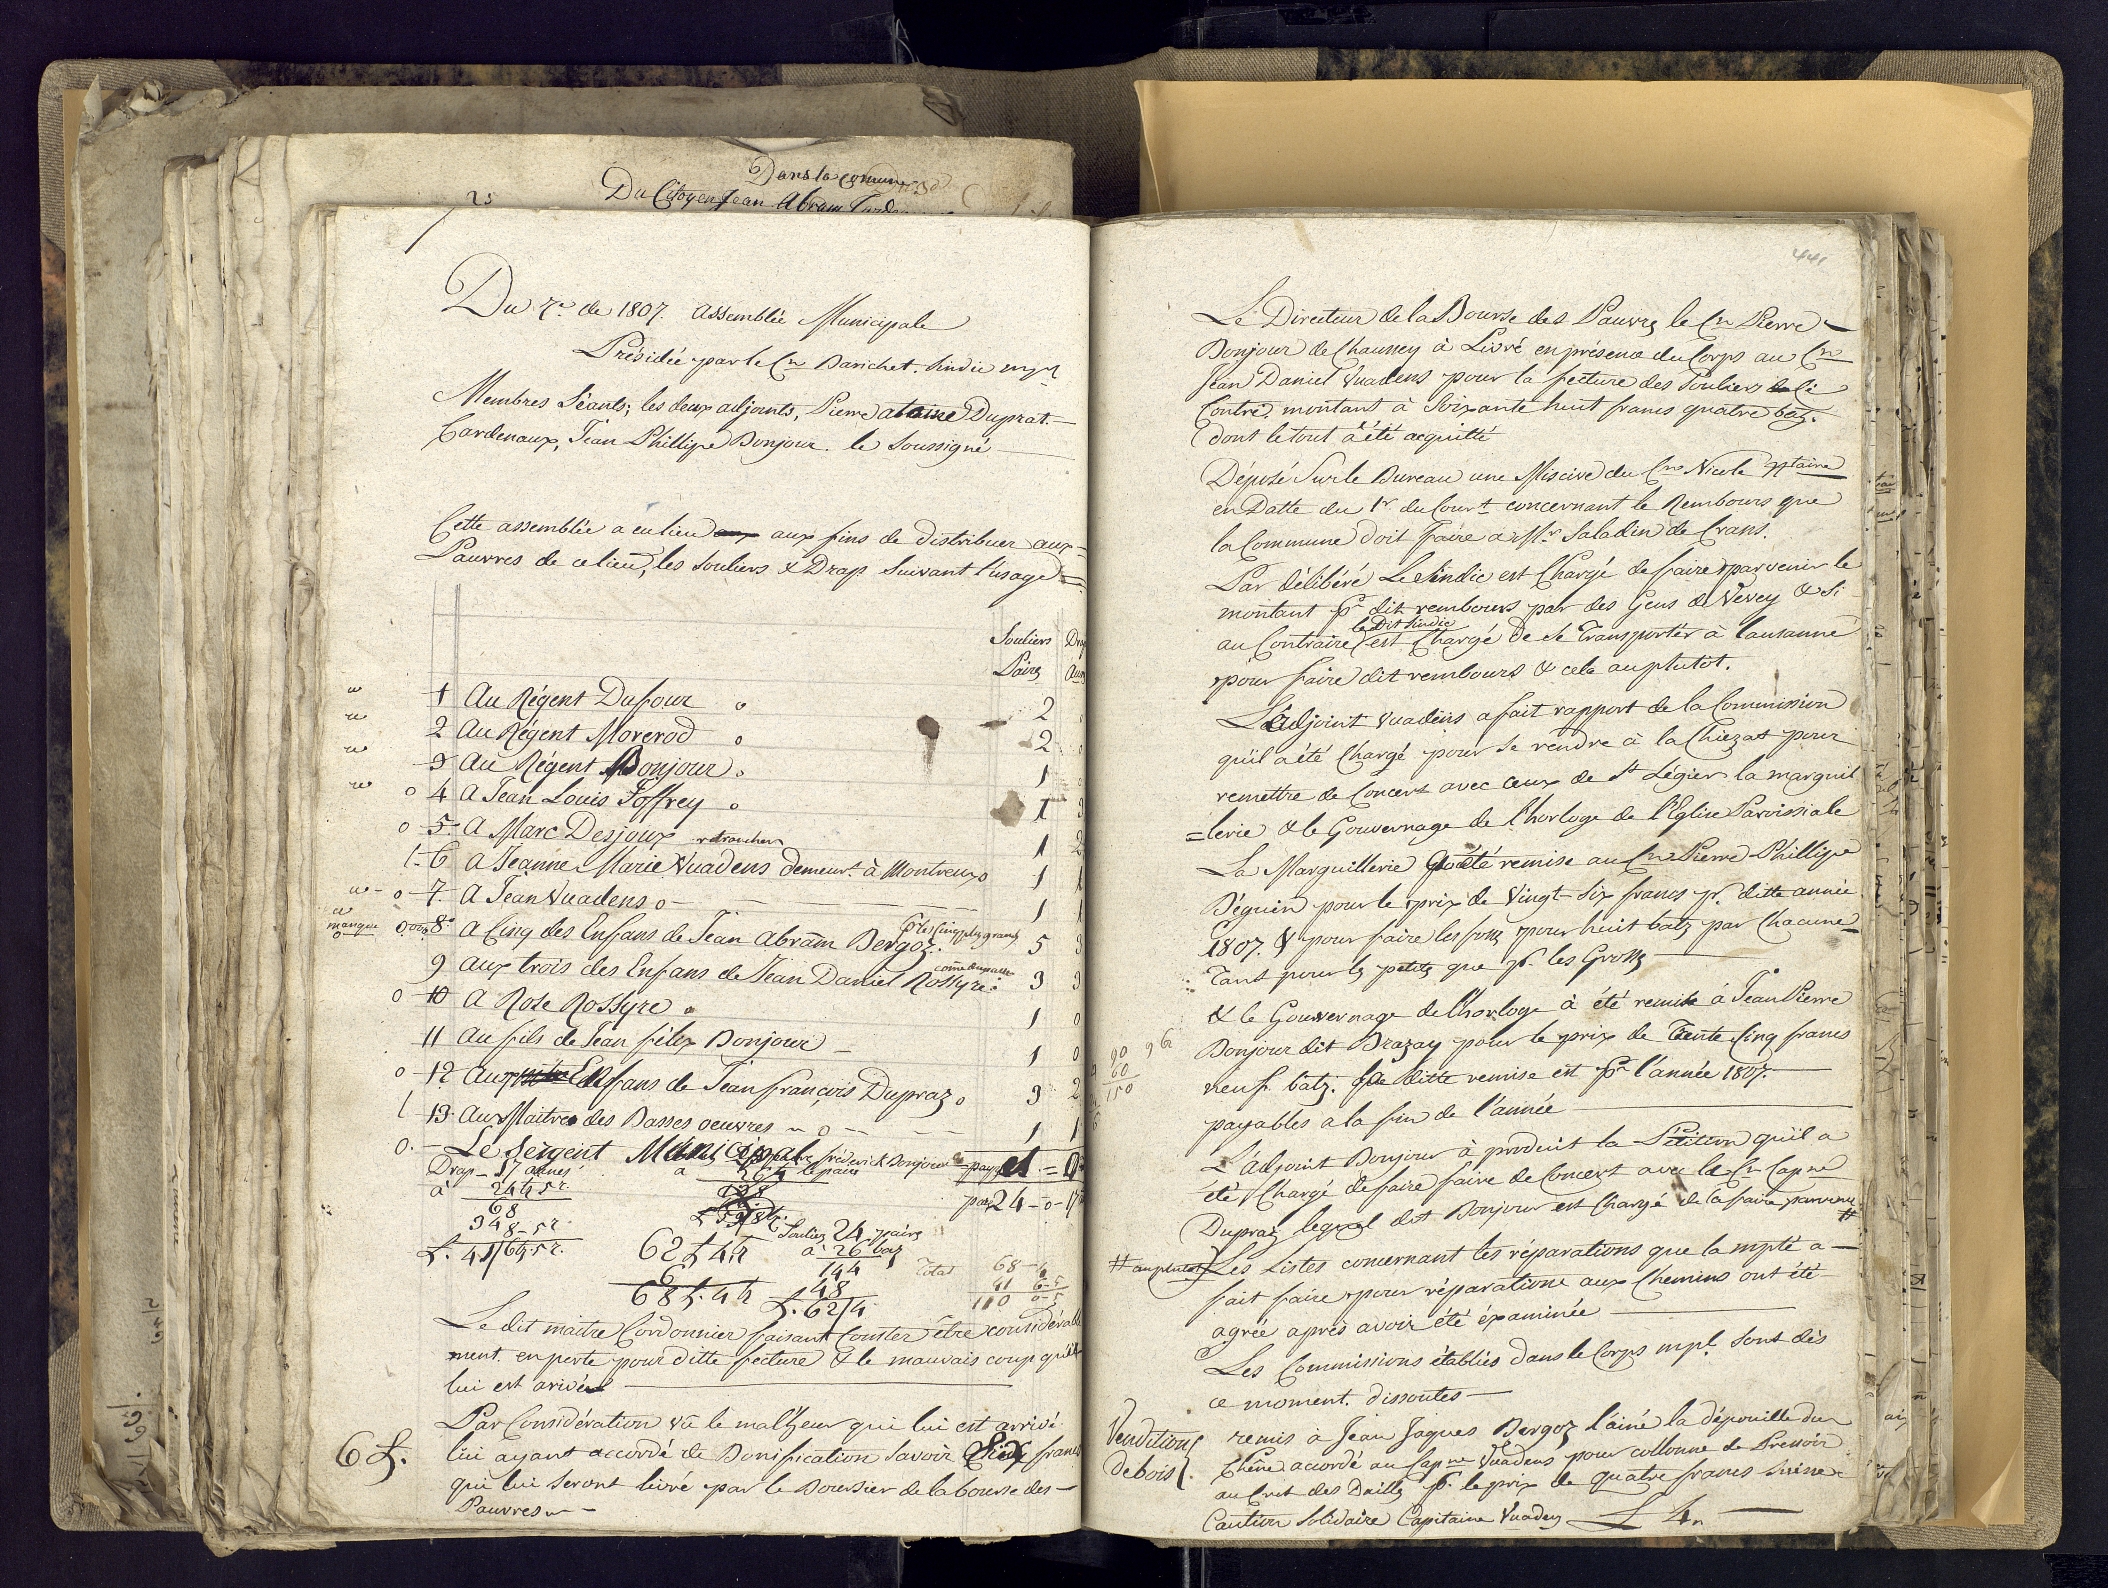 Dans la comune
Du Citoyen Jean Abram
25
Du 7.e de 1807. Assemblée Municipale
Présidée par le Cn Barichet. Sindic mpl
Membres Séants; les deux adjoints, Pierre Duprat.
Cardenaux, Jean Phillipe Bonjour. le Soussigné
Cette assemblée a eu lieu aux fins de distribuer aux
Pauvres de ce lieu, les souliers & Drap Suivant l'usage
Souliers
Paires
1 Au Régent Dufour o 2
2 Au Régent Morerod o 2
3 Au Régent Bonjour o 1
o 4 A Jean Louis Joffrey o 1 3
o 5 A Marc Desjoux 1 2
retrancher
6 A Jeanne Marie Vuadens demeurt à Montreux o 1 1
o 7. A Jean Vuadens o 1 1
manque 8. A Cinq des Enfans de Jean Abram Bergoz. 5 3
9 Aux trois des Enfans de Jean Daniel Rossyre. 3 3
o 10 A Rose Rossyre 1 0
11 Au fils de Jean félix Bonjour 1 0
o 12 Aux Enfans de Jean françois Dupraz o 3 2
13. Aux Maitres des Basses oeuvres o 1 1
o. Le Sergent Municipal
Drap 17 aunes
à 24 h 5 r.
68
34 8-5 r
L. 41/6 h 5 r.
Souliers 24 paires
à 26 baz
144
48
L. 62/4
62 L 4 h
6
68 L. 4 h
24-0-17
Total 68-4
41 6-5
110 0-5
Le dit maitre Cordonnier faisant Conster être considérable
ment en perte pour ditte fecture & le mauvais coup qu'il
lui est arivée
Par Considération vû le malheur qui lui est arrivé
6 L. lui ayant accordé de Bonification Savoir Six francs
qui lui seront livré par le Boursier de la bourse des
Pauvres
441
Le Directeur de la Bourse des Pauvres le Cn Pierre
Bonjour de Chausney à Livré en présence du Corps au Cn
Jean Daniel Vuadens pour la fecture des Souliers Ci
Contre. montant à Soixante huit francs quatre batz.
dont le tout à été acquitté
Déposé Sur le Bureau une Miscive du Cn Nicole
en Datte du 1r du Court concernant le Rembours que
la Commune doit faire à Mr. Saladin de Crans.
Par délibéré Le Sindic est Chargé de faire parvenir le
montant pr dit rembours par des Gens de Vevey & Si
le Dit Sindic
au Contraire est Chargé de se Transporter à Lausanne
pour faire dit rembours & cela au plutôt.
L'adjoint Vuadens a fait rapport de la Commission
qu'il a été Chargé pour se rendre à la Chiezat pour
remettre de Concert avec ceux de St Légier la marguil
=lerie & le Gouvernage de l'horloge de l'Eglise Paroissiale
La Marguillerie à été remise au Cn Pierre Phillipe
Déguin pour le prix de Vingt Six francs pr. ditte année
1807. & pour faire les foss pour huit batz par Chacune
Tant pour les petits que pr. les Gross
90 96
60
150
& le Gouvernage de l'horloge à été remise à Jean Pierre
Bonjour dit Brazay pour le prix de Trente Cinq francs
neuf batz. La ditte remise est pr l'année 1807.
payables a la fin de l'année
L'adjoint Bonjour à produit la Pétition qu'il a
été Chargé de faire faire de Concert avec le Cn Capne
Dupraz lequel dit Bonjour est Chargé de la faire parvenir #
# au plutôt Les Listes concernant les réparations que la mpté a
fait faire pour réparations aux Chemins ont été
agrée après avoir été éxaminée
Les Commissions établies dans le Corps mpl. Sont dès
ce moment. dissoutes
Venditions de bois.
remis à Jean Jaques Bergoz l'ainé la dépouille du
Chêne accordé au Capne Vuadens pour collonne de Pressoir
au Cret des Dailles pr. le prix de quatre francs Suisse
Caution Solidaire Capitaine Vuadens L 4